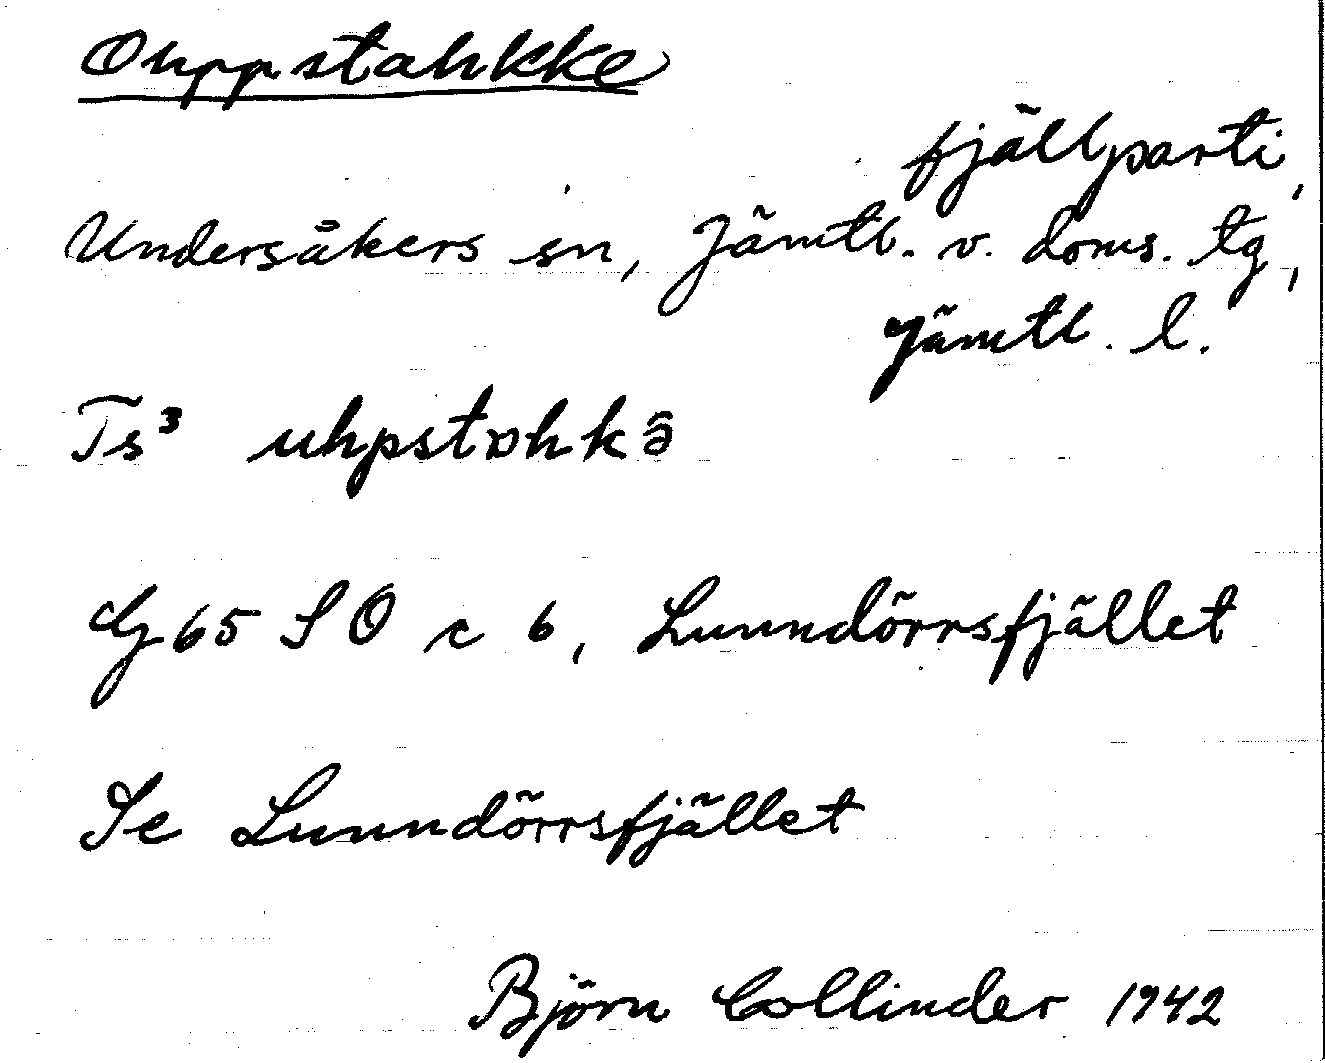 Ohppstahkke
fjällparti,
Undersåkers sn, Jämtl. v. doms. tg,
Jämtl. l.
Ts³ uhpstɒhkə̂
G 65 SO c 6, Lunndörrsfjället
Se Lunndörrsfjället
Björn Collinder 1942